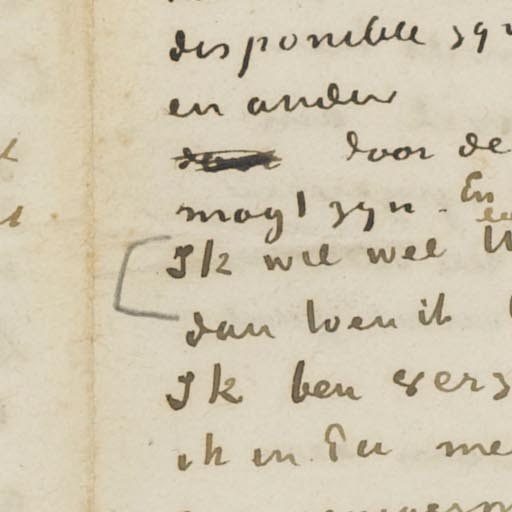 disponible zyn
en ander
door de
mogt zyn. En
Ik wil wel
dan toen ik
Ik ben verz
ik in Eu me